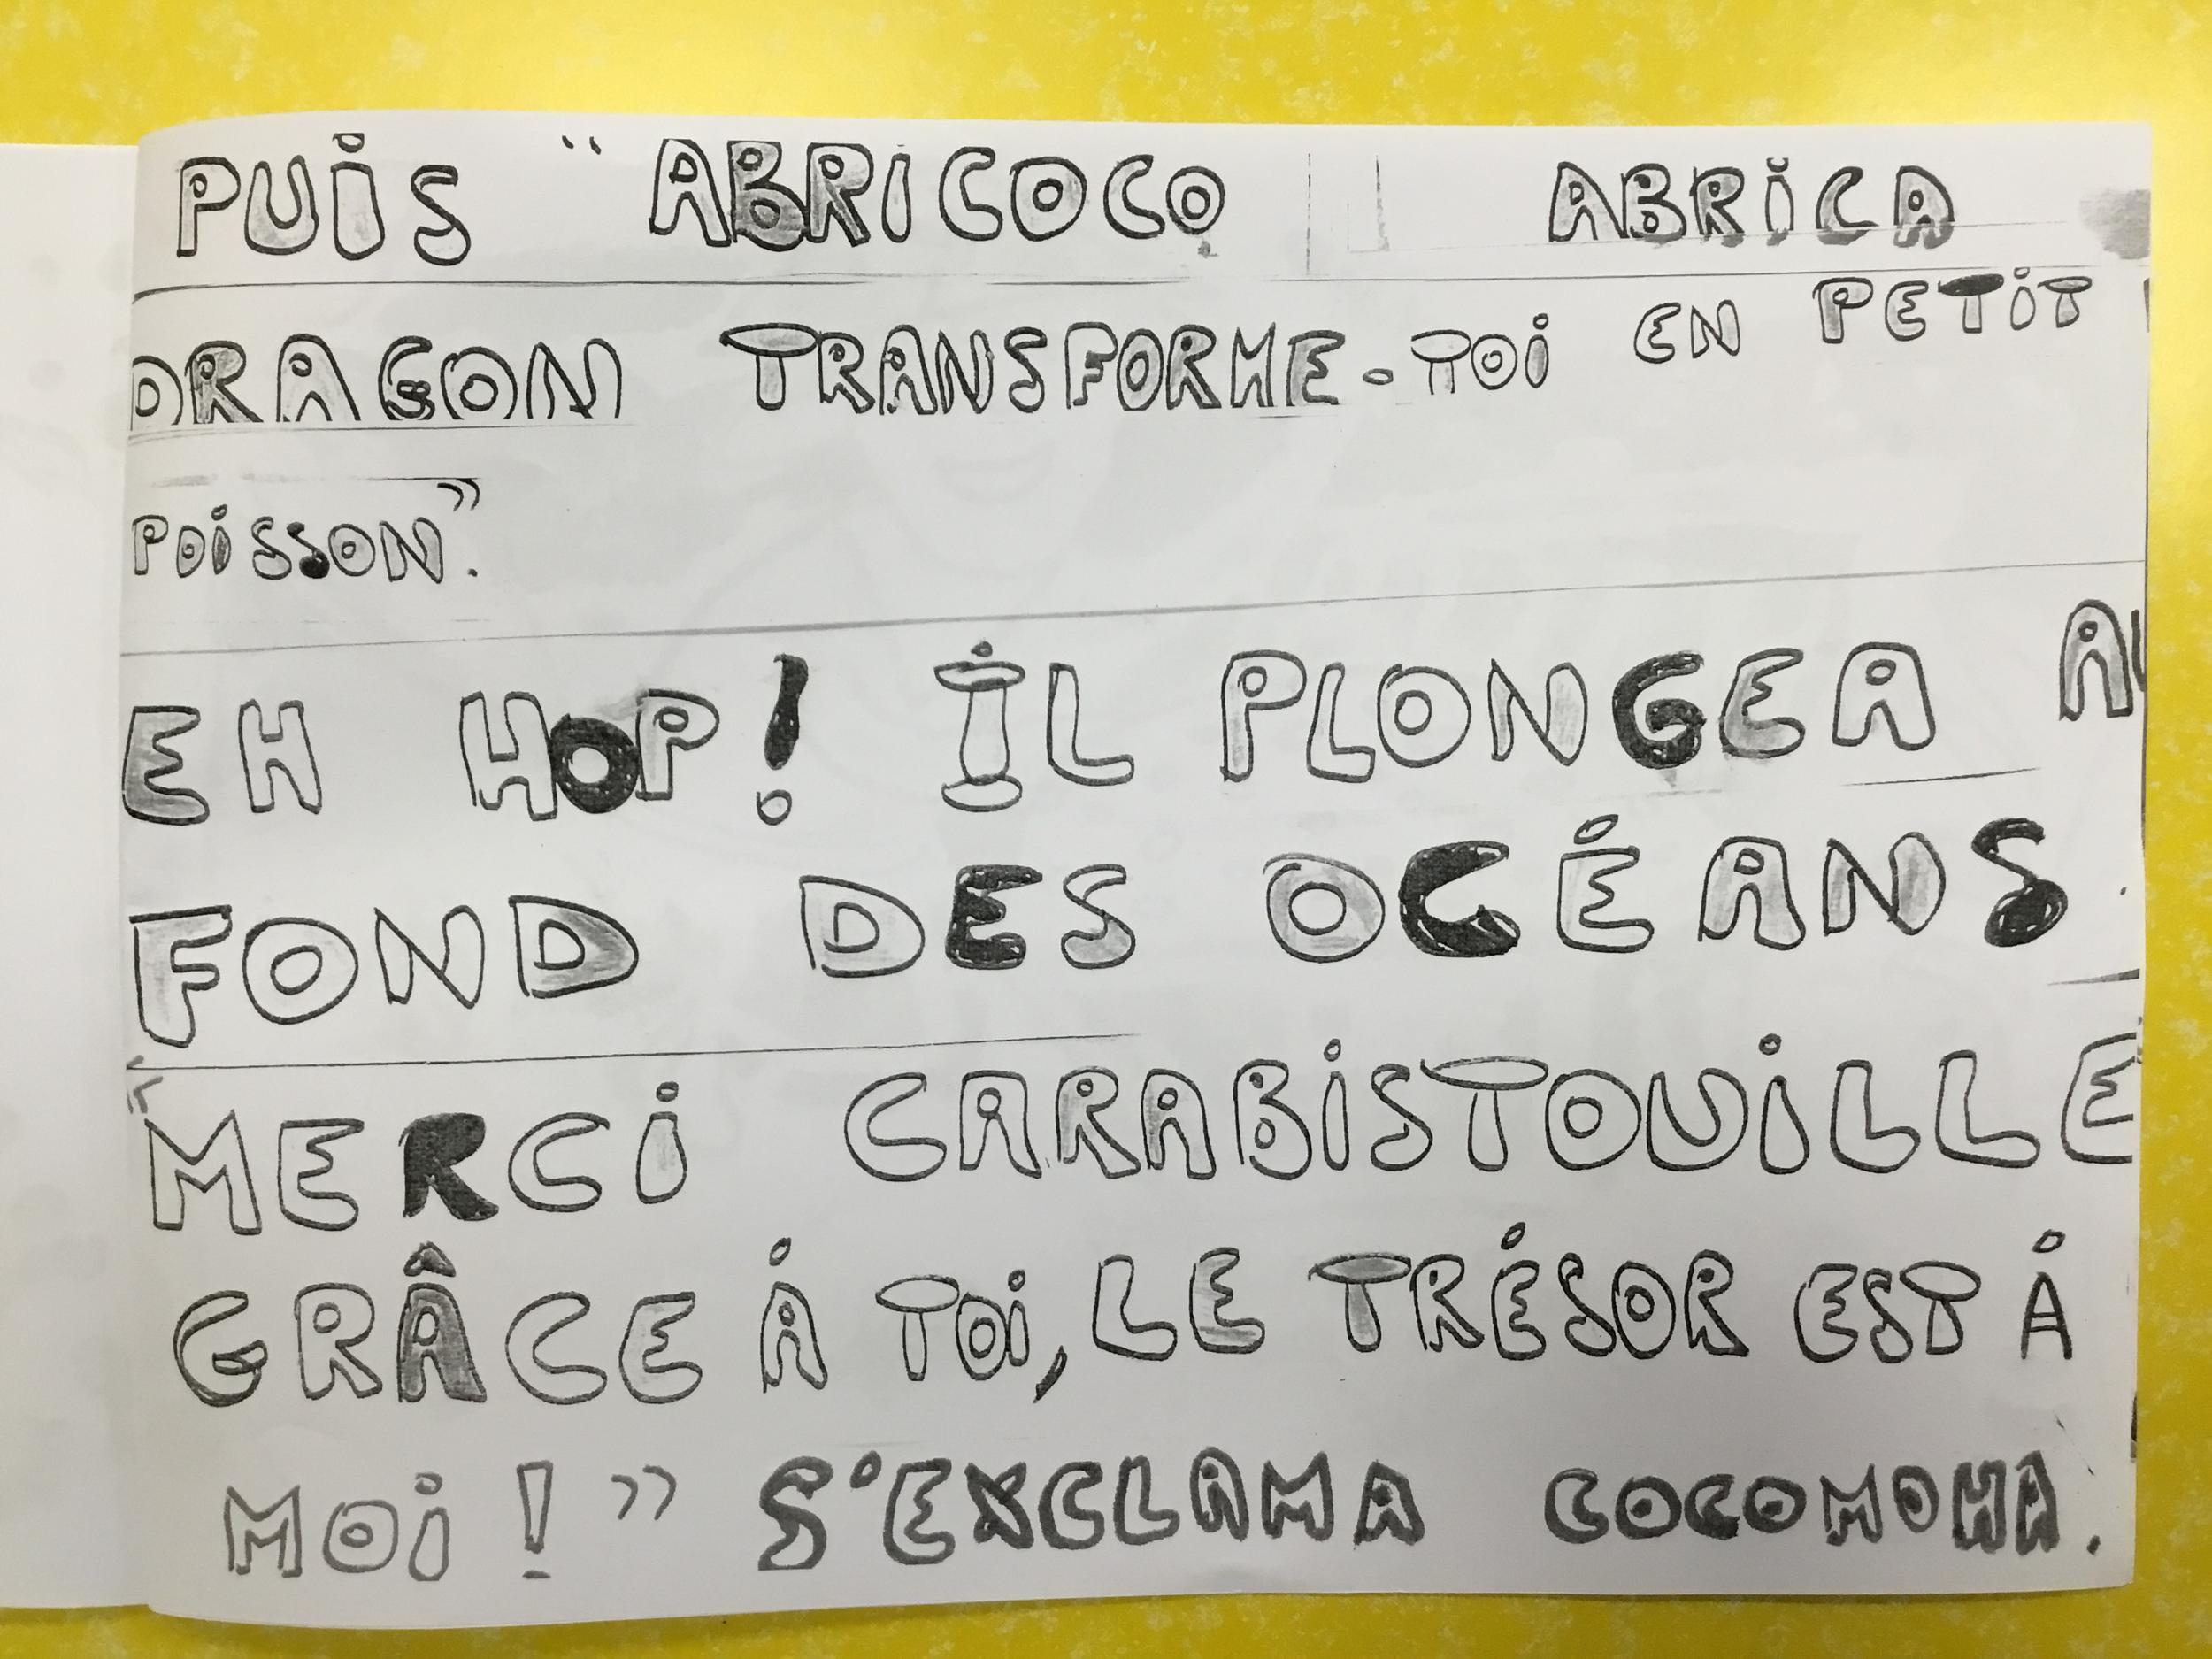 PUIS " ABRICOCO ABRICA
DRAGON TRANSFORME-TOI EN PETIT
POISSON".
EH HOP! IL PLONGEA AU
FOND DES OCÉANS.
"MERCI CARABISTOUILLE
GRÂCE À TOI, LE TRÉSOR EST À
MOI !" S'EXCLAMA COCOMOHA.